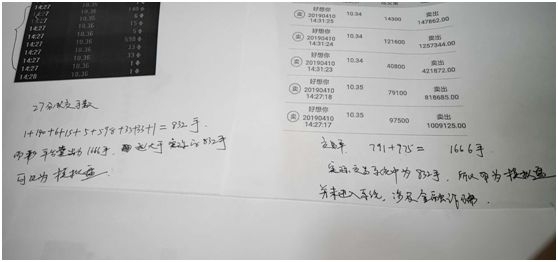 14:27
14:27 10.36 140
14:27 10.36 6
14:27 10.36 15
14:27 10.36 5
14:27 10.35 598
14:27 10.36 33
14:27 10.36 33
14:27 10.36 1
14:28 10.36 1
27分成交手数
1+140+6+15+5+598+33+33+1=832手.
平台卖出为1666手. 远大于实际的832手
可以为模拟盘
卖 好想你 20190410 14:31:25 10.34 14300 卖出 147862.00
卖 好想你 20190410 14:31:24 10.34 121600 卖出 1257344.00
卖 好想你 20190410 14:31:23 10.34 40800 卖出 421872.00
卖 好想你 20190410 14:27:18 10.35 79100 卖出 818685.00
卖 好想你 20190410 14:27:17 10.35 97500 卖出 1009125.00
交易单 791+975= 1666手
实际交易系统中为832手. 所以即为模拟盘
并未进入系统, 涉及金融诈骗.